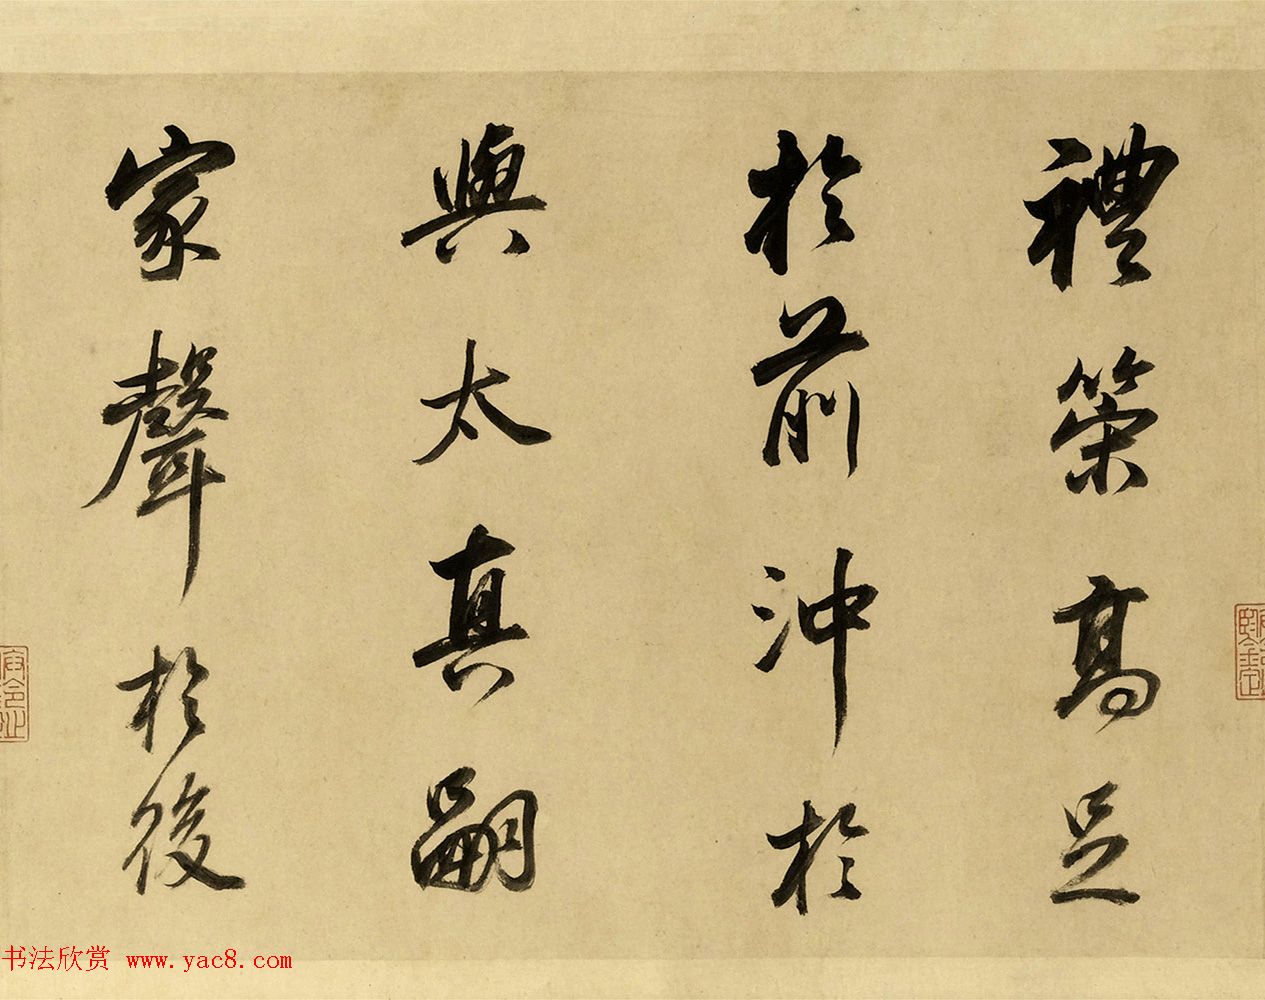 禮策高足
於前沖於
與太真嗣
家聲於後
书法欣赏 www.yac8.com